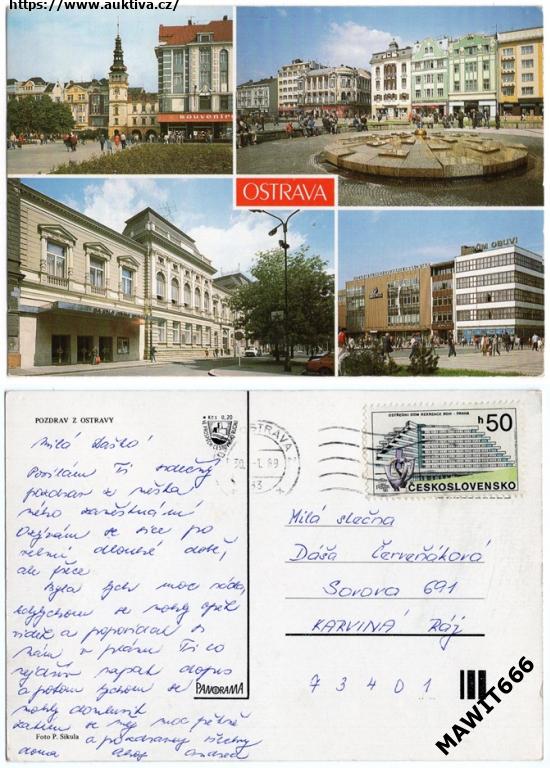 https://www.auktiva.cz/
souvenirs
OSTRAVA
DŮM OBUVI
POZDRAV Z OSTRAVY
Kčs 0,20
OSTRAVA
30. -1. 89
OSTŘEDNÍ DŮM REKREACE ROH - PRAHA
h 50
ČESKOSLOVENSKO
Milá Daško!
Posílám Ti srdečný
pozdrav z města
Ozývám se sice po
velmi dlouhé době,
ale přece.
Byla bych moc ráda,
kdybychom se mohly opět
vidět a popovídat si
mám v plánu Ti co
nejdříve napsat dopis
a potom bychom se
mohly domluvit
zatím se měj moc pěkně
a pozdravuj všechny
doma
Milá slečna
Dáša Červeňáková
Sovova 691
KARVINÁ Ráj
7 3 4 0 1
PANORAMA
Foto P. Sikula
MAWIT666